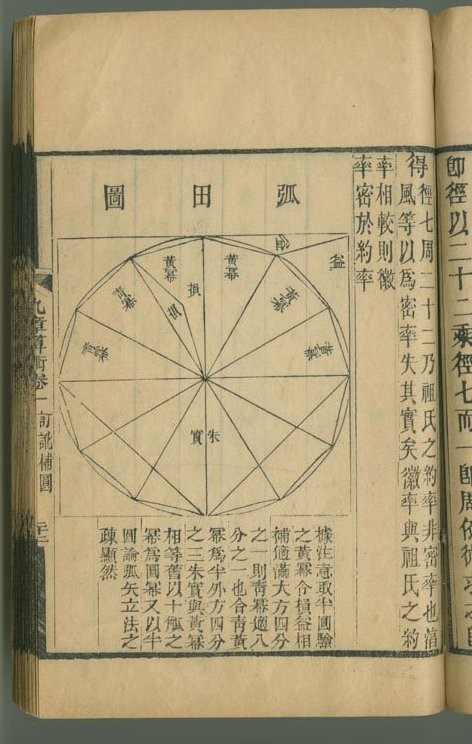 卽徑以二十二乘徑七而一卽周依術
得
徑七周二十二乃祖氏之約率非密率也湻
風等以爲密率失其實矣徽率與祖氏之約
率相較則徽
率密於約率
弧田圖
益
黃冪
黃冪
黃冪
青冪
青冪
青冪
朱實
據注意取半圓驗
之黃冪合損益相
補適滿大方四分
之一則靑冪適八
分之一也合靑黃
冪爲半外方四分
之三朱實與黃冪
相等舊以十觚之
冪爲圓冪又以半
圓論弧矢立法之
疎顯然
九章算術卷一
訂訛補圖